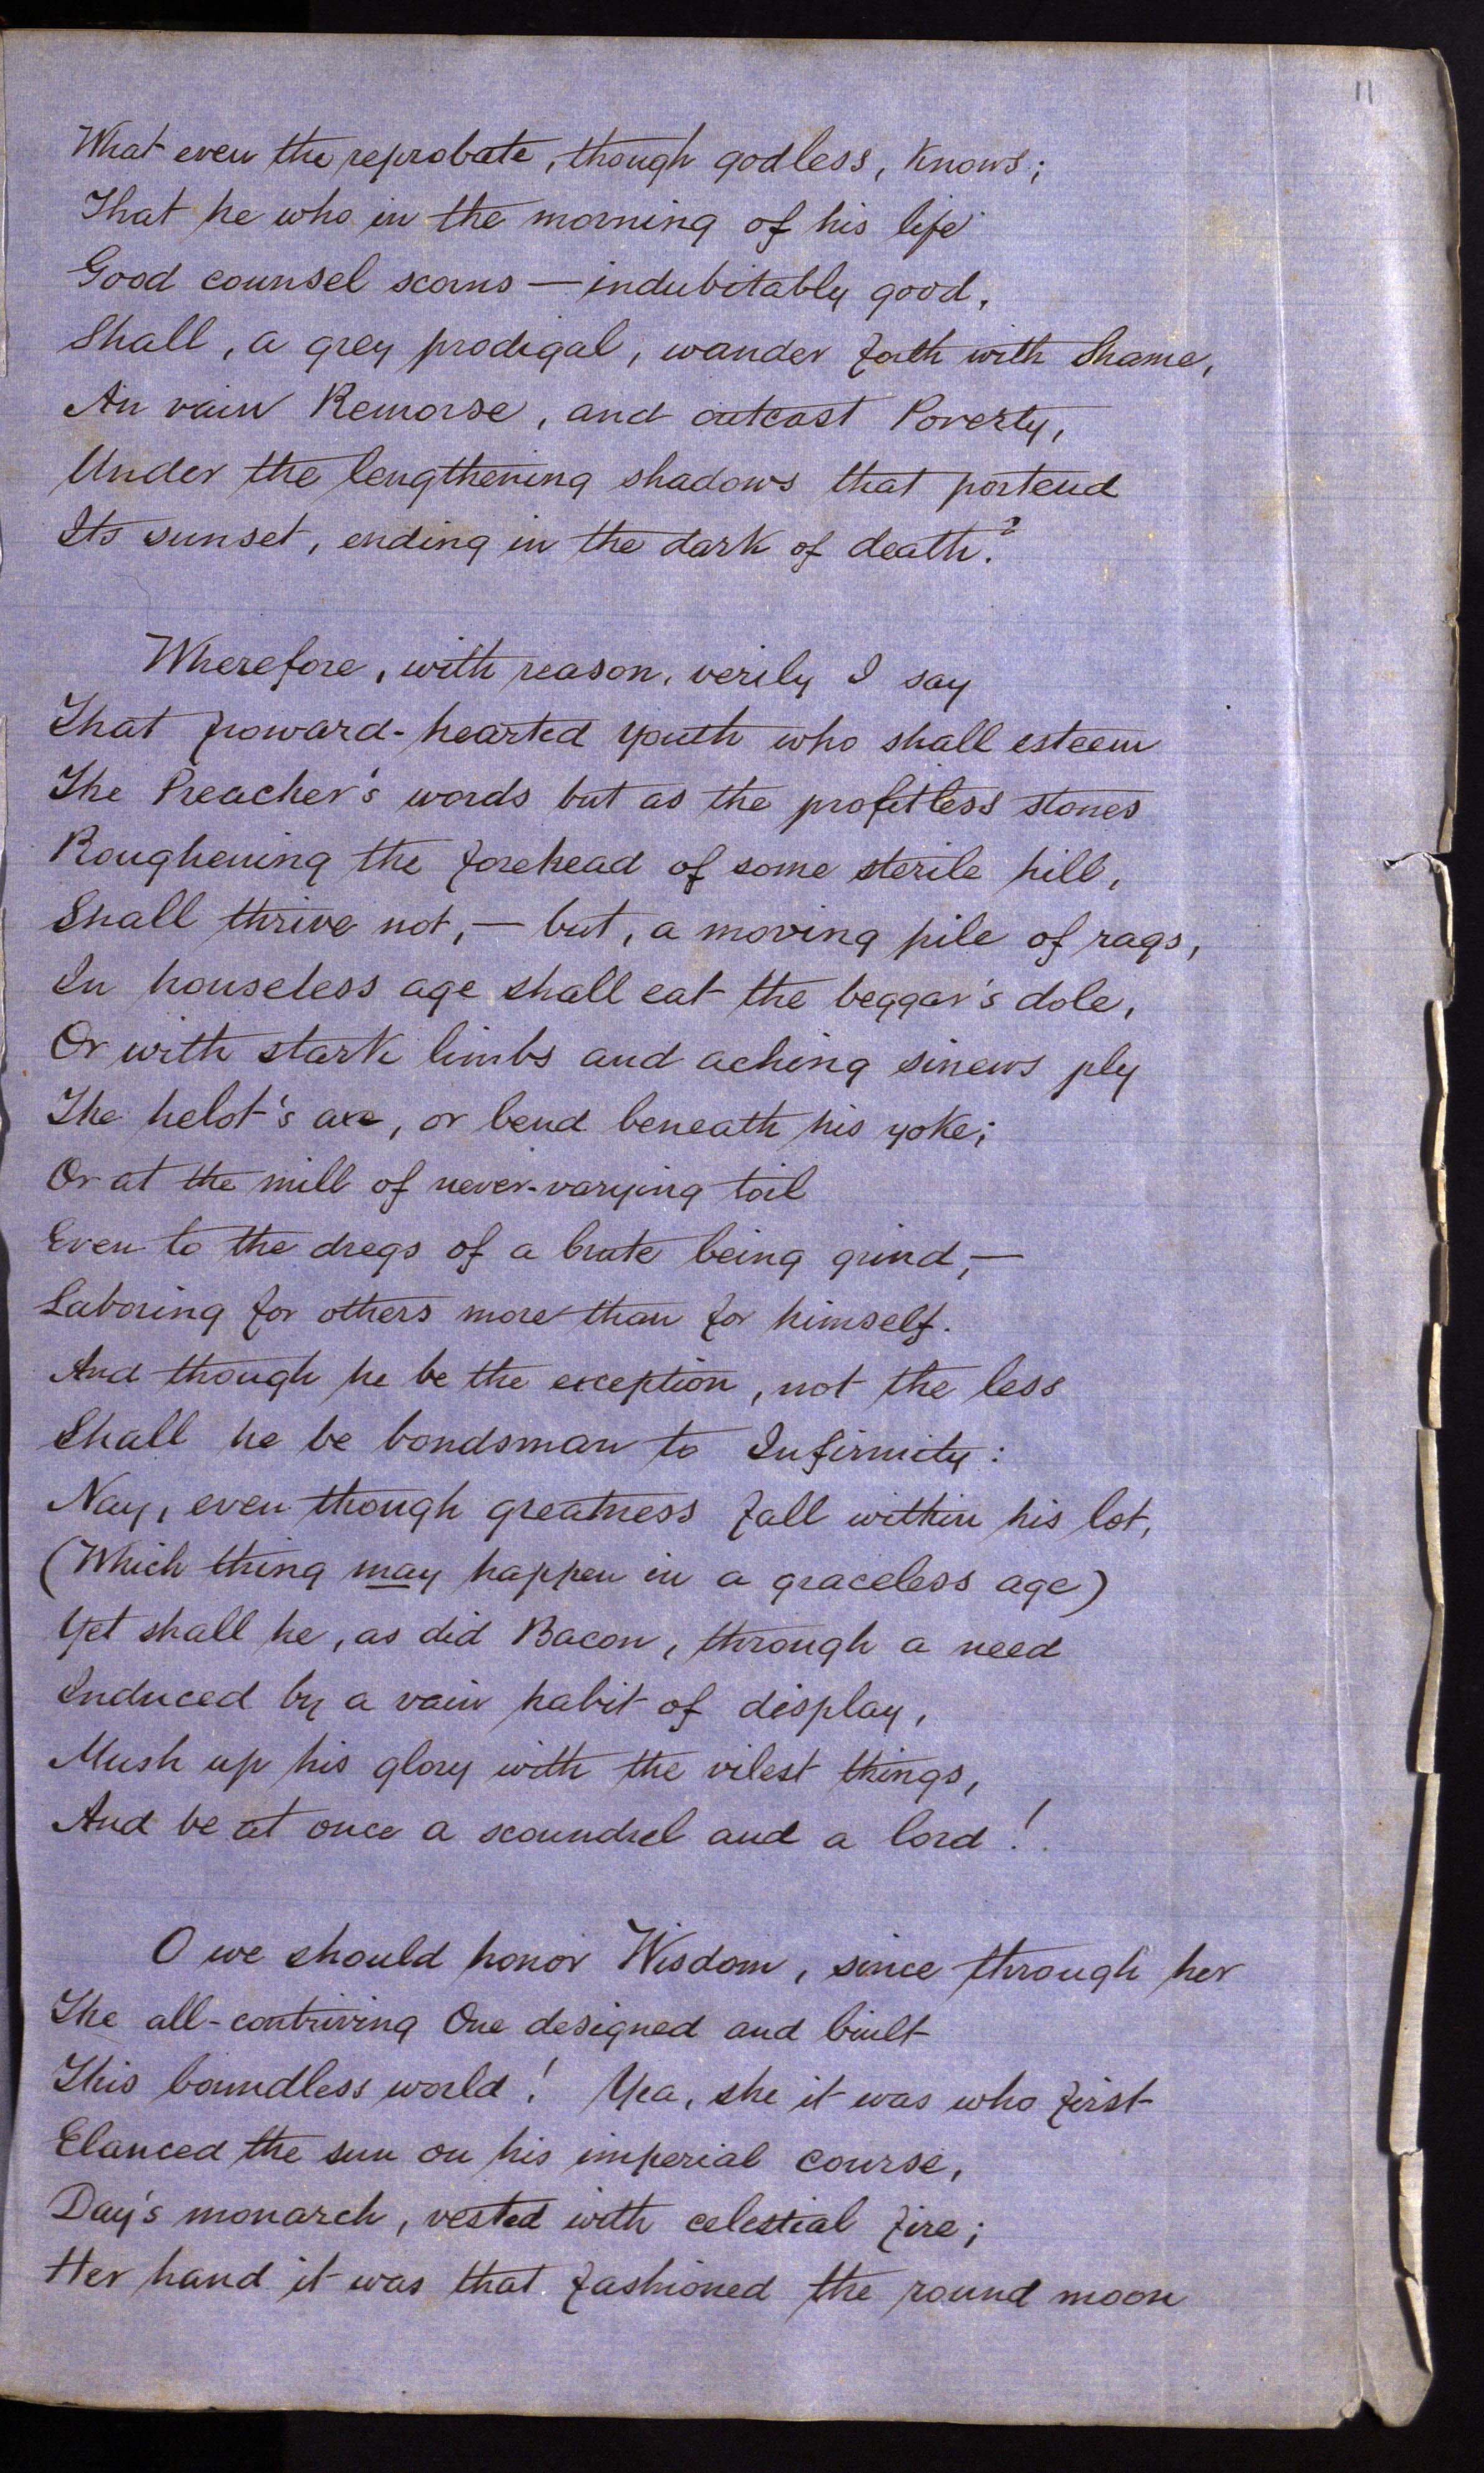 11
What even the reprobate, though godless, knows;
That he who in the morning of his life
Good counsel scorns — indubitably good,
Shall, a grey prodigal, wander forth with Shame,
An vain Remorse, and outcast Poverty,
Under the lengthening shadows that portend
Its sunset, ending in the dark of death?
Wherefore, with reason, verily I say
That froward-hearted youth who shall esteem
The Preacher's words but as the profitless stones
Roughening the forehead of some sterile hill,
Shall thrive not, — but, a moving pile of rags,
In houseless age shall eat the beggar's dole,
Or with stark limbs and aching sinews ply
The helot's axe, or bend beneath his yoke;
Or at the mill of never-varying toil
Even to the dregs of a brute being grind, —
Laboring for others more than for himself.
And though he be the exception, not the less
Shall he be bondsman to Infirmity:
Nay, even though greatness fall within his lot,
(Which thing may happen in a graceless age)
Yet shall he, as did Bacon, through a need
Induced by a vain habit of display,
Mush up his glory with the vilest things,
And be at once a scoundrel and a lord!
O we should honor Wisdom, since through her
The all-contriving One designed and built
This boundless world! Yea, she it was who first
Elanced the sun on his imperial course,
Day's monarch, vested with celestial fire;
Her hand it was that fashioned the round moon